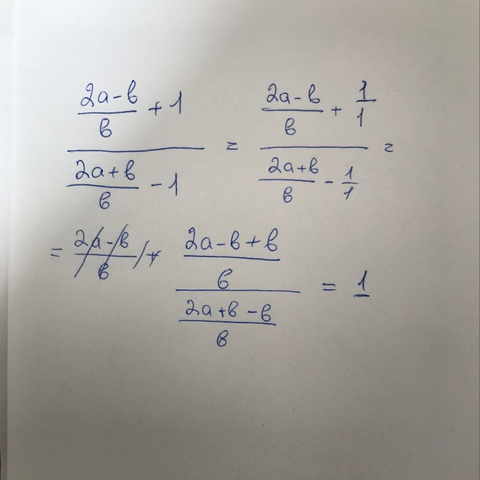 ((2a-b)/b + 1)/((2a+b)/b - 1) = ((2a-b)/b + 1/1)/((2a+b)/b - 1/1) =
= ((2a-b+b)/b)/((2a+b-b)/b) = 1